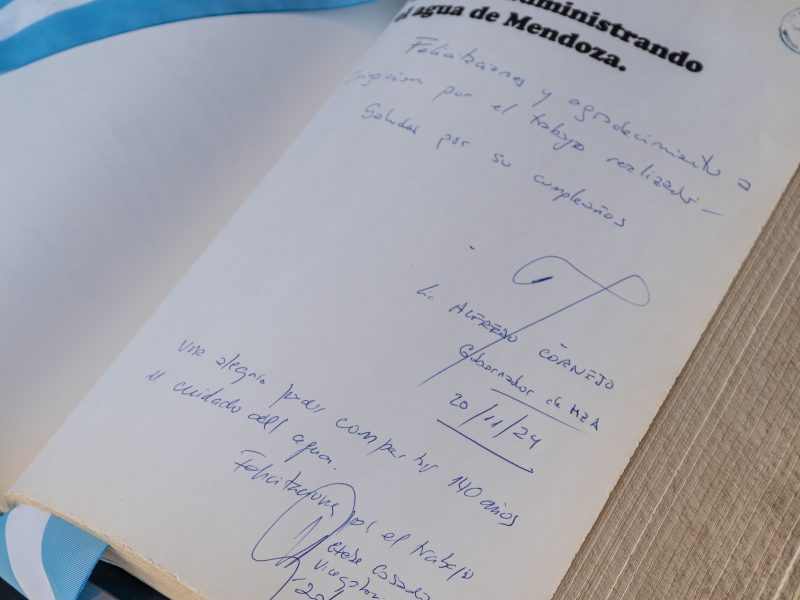 administrando
el agua de Mendoza.
Felicitaciones y agradecimiento a
Irrigacion por el trabajo realizado -
Saludos por su cumpleaños
Lic. ALFREDO CORNEJO
Gobernador de MZA
20/11/24
una alegria poder compartir 140 años
cuidado del agua.
Felicitaciones por el trabajo
Casado